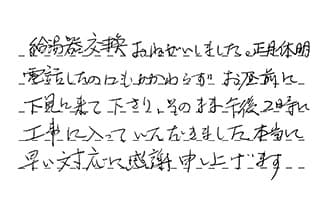 給湯器交換おねがいしました。正月休明
電話したのにもかかわらずお昼前に
下見に来て下さり、そのまま午後2時に
工事に入っていただきました。本当に
早い対応に感謝申し上げます